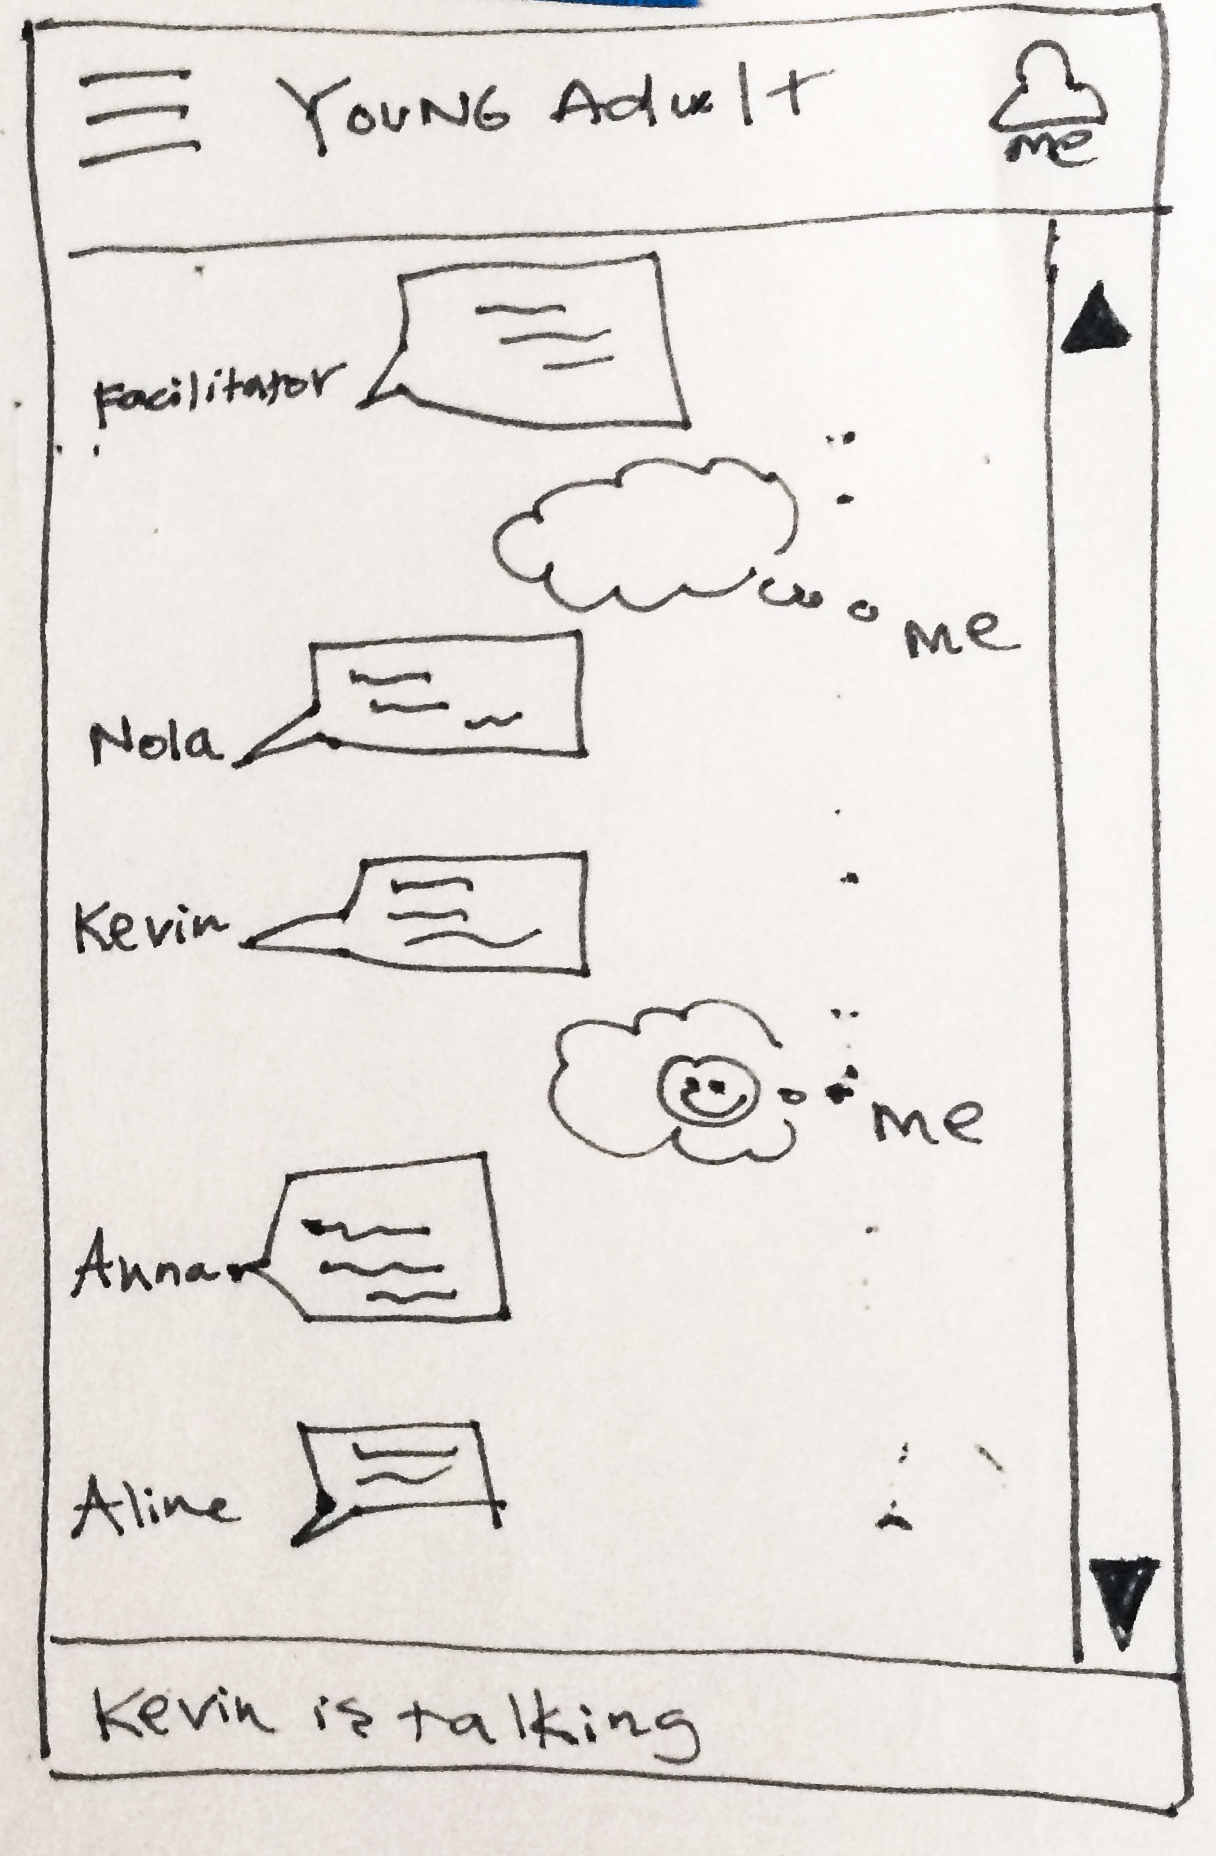 Young Adult
me
Facilitator
me
Nola
Kevin
me
Anna
Aline
Kevin is talking